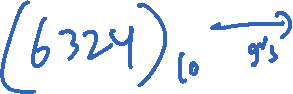 (6324)₁₀ ⟷ 9's